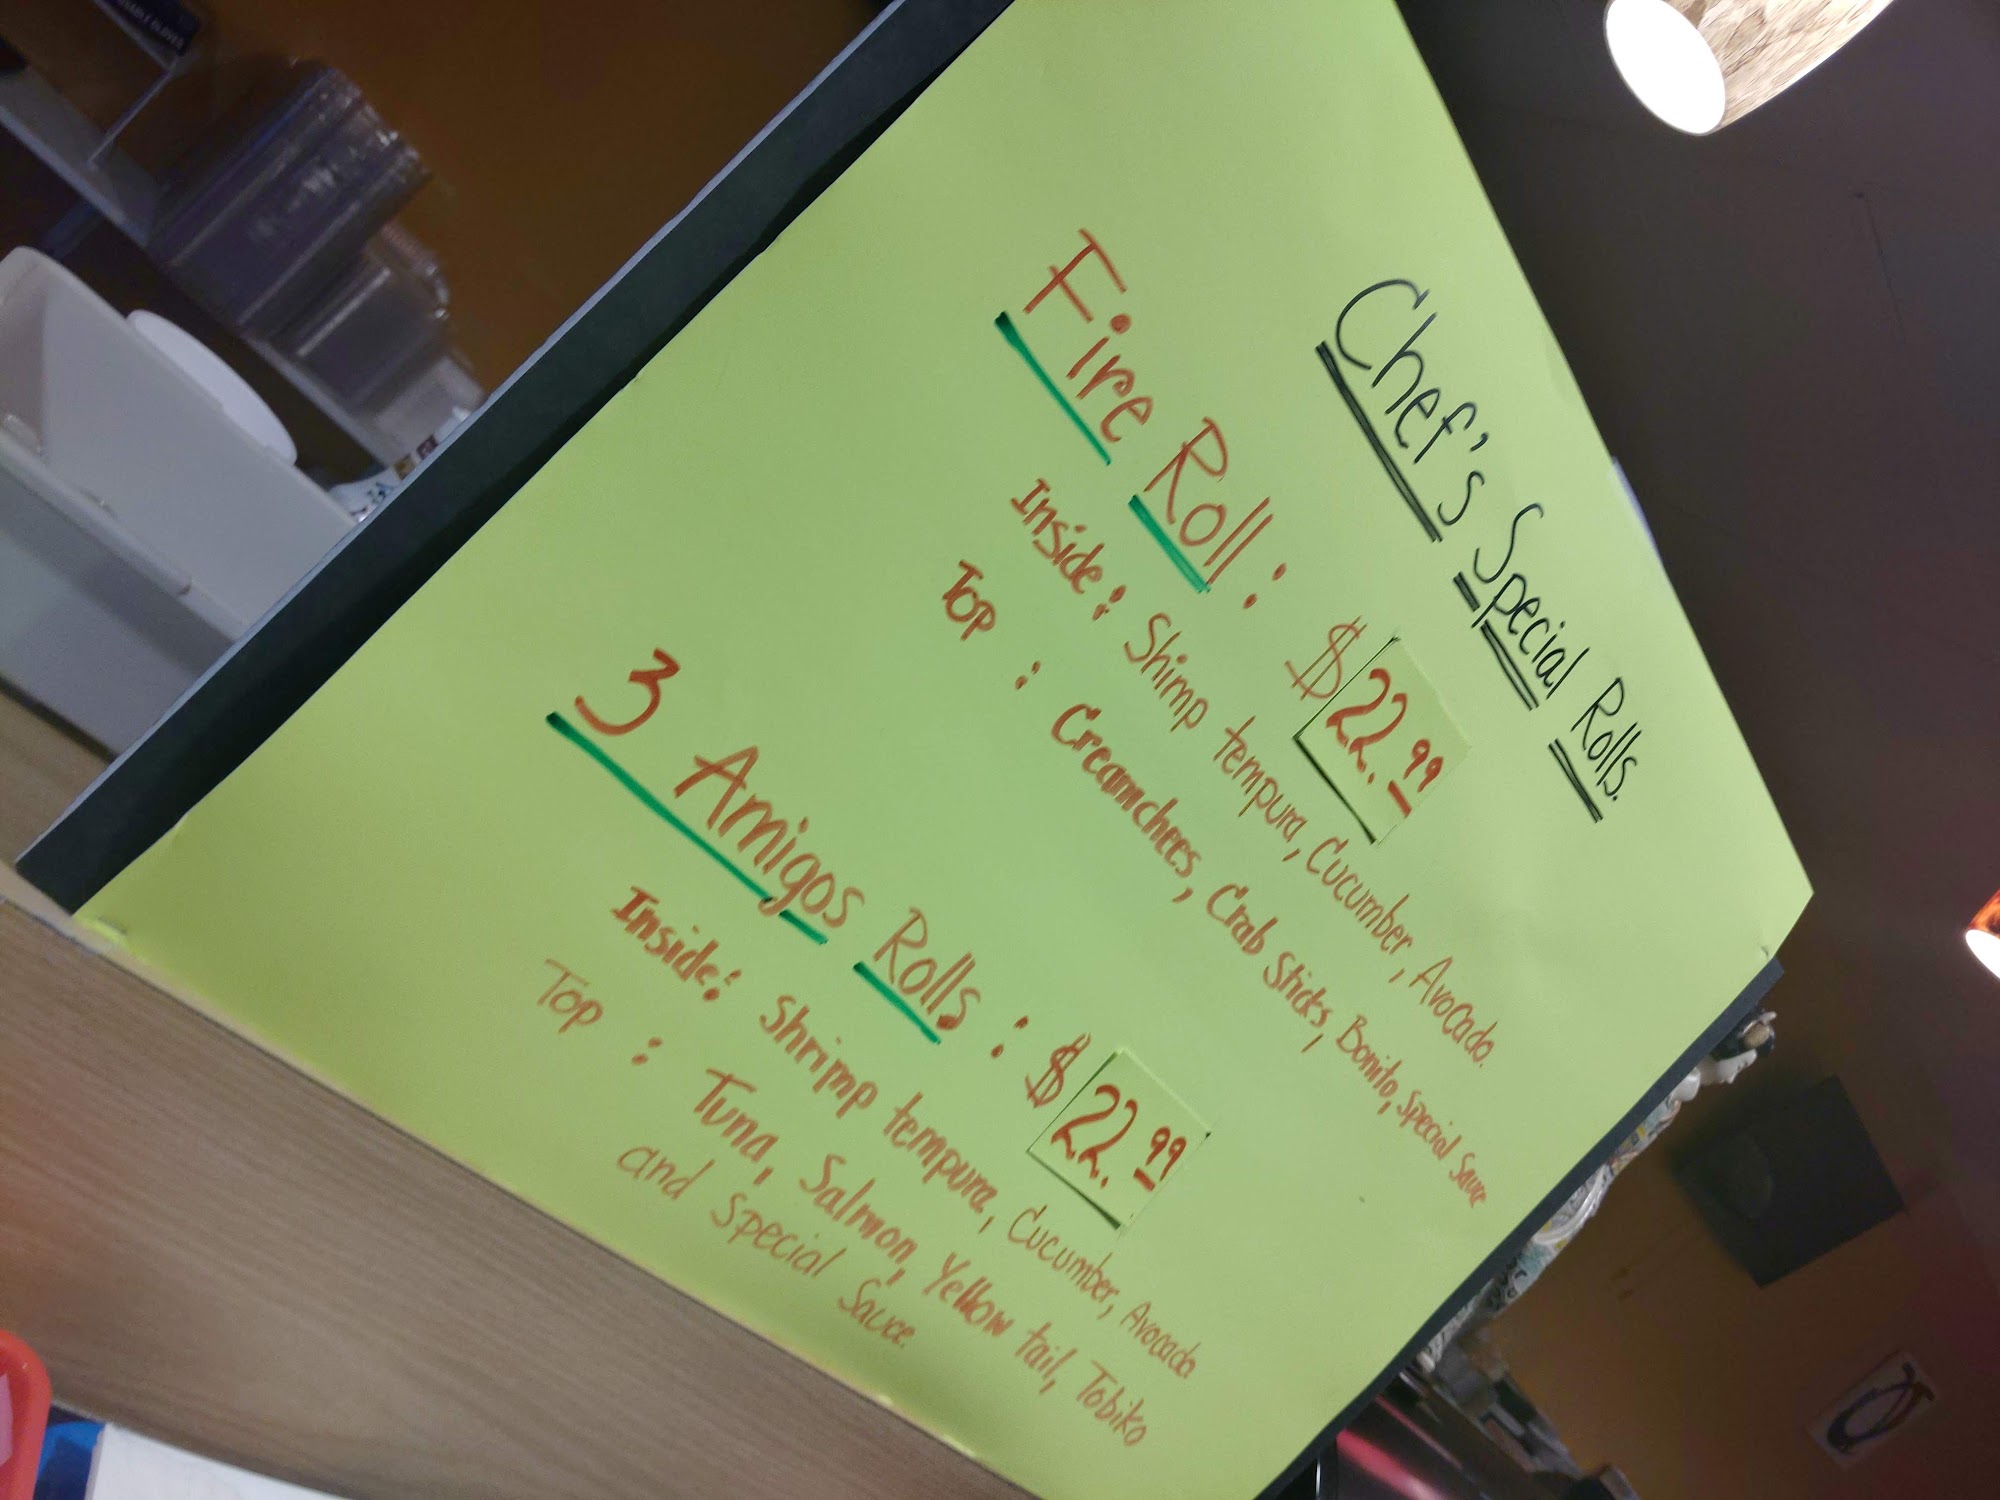 Chef's Special Rolls.
Fire Roll : $22.99
Inside: Shimp tempura, Cucumber, Avocado.
Top : Creamchees, Crab Sticks, Bonito, Special Sauce
3 Amigos Rolls : $22.99
Inside: Shrimp tempura, Cucumber, Avocado
Top : Tuna, Salmon, Yellow tail, Tobiko
and special Sauce.